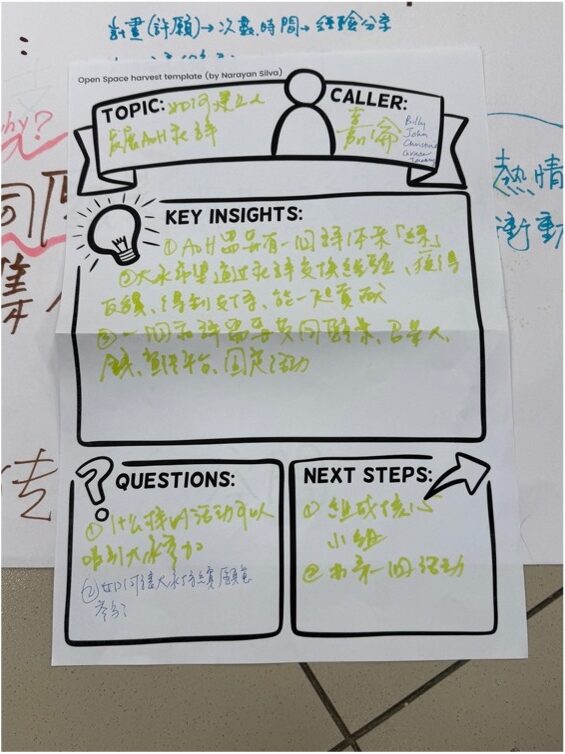 計畫(許願)→次數、時間→經驗分享
Open Space harvest template (by Narayan Silva)
TOPIC: 如何建立
發展AoH社群
CALLER:
嘉
Billy
John
Christine
Grace
hy?
熱情
衝動
KEY INSIGHTS:
① AoH需要有一個群体來「練」
②大家希望通过社群交換經驗、獲得
反饋、得到支持、能一起貢献
③一個社群需要共同願景、召集人、
錢、資訊平台、固定活動
QUESTIONS:
①什么樣的活動可以
吸引大家參加
②如何讓大家持續願意
參與?
NEXT STEPS:
①組成核心
小組
②力辛一個活動